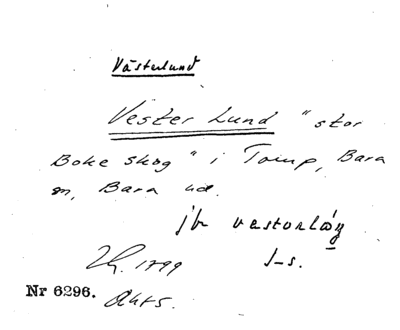 Västerlund
Vester Lund "stor
Boke skog" i Torup, Bara
sn, Bara hd.
jfr vestorläg
1799 J-s.
Nr 6296. Akt 5.